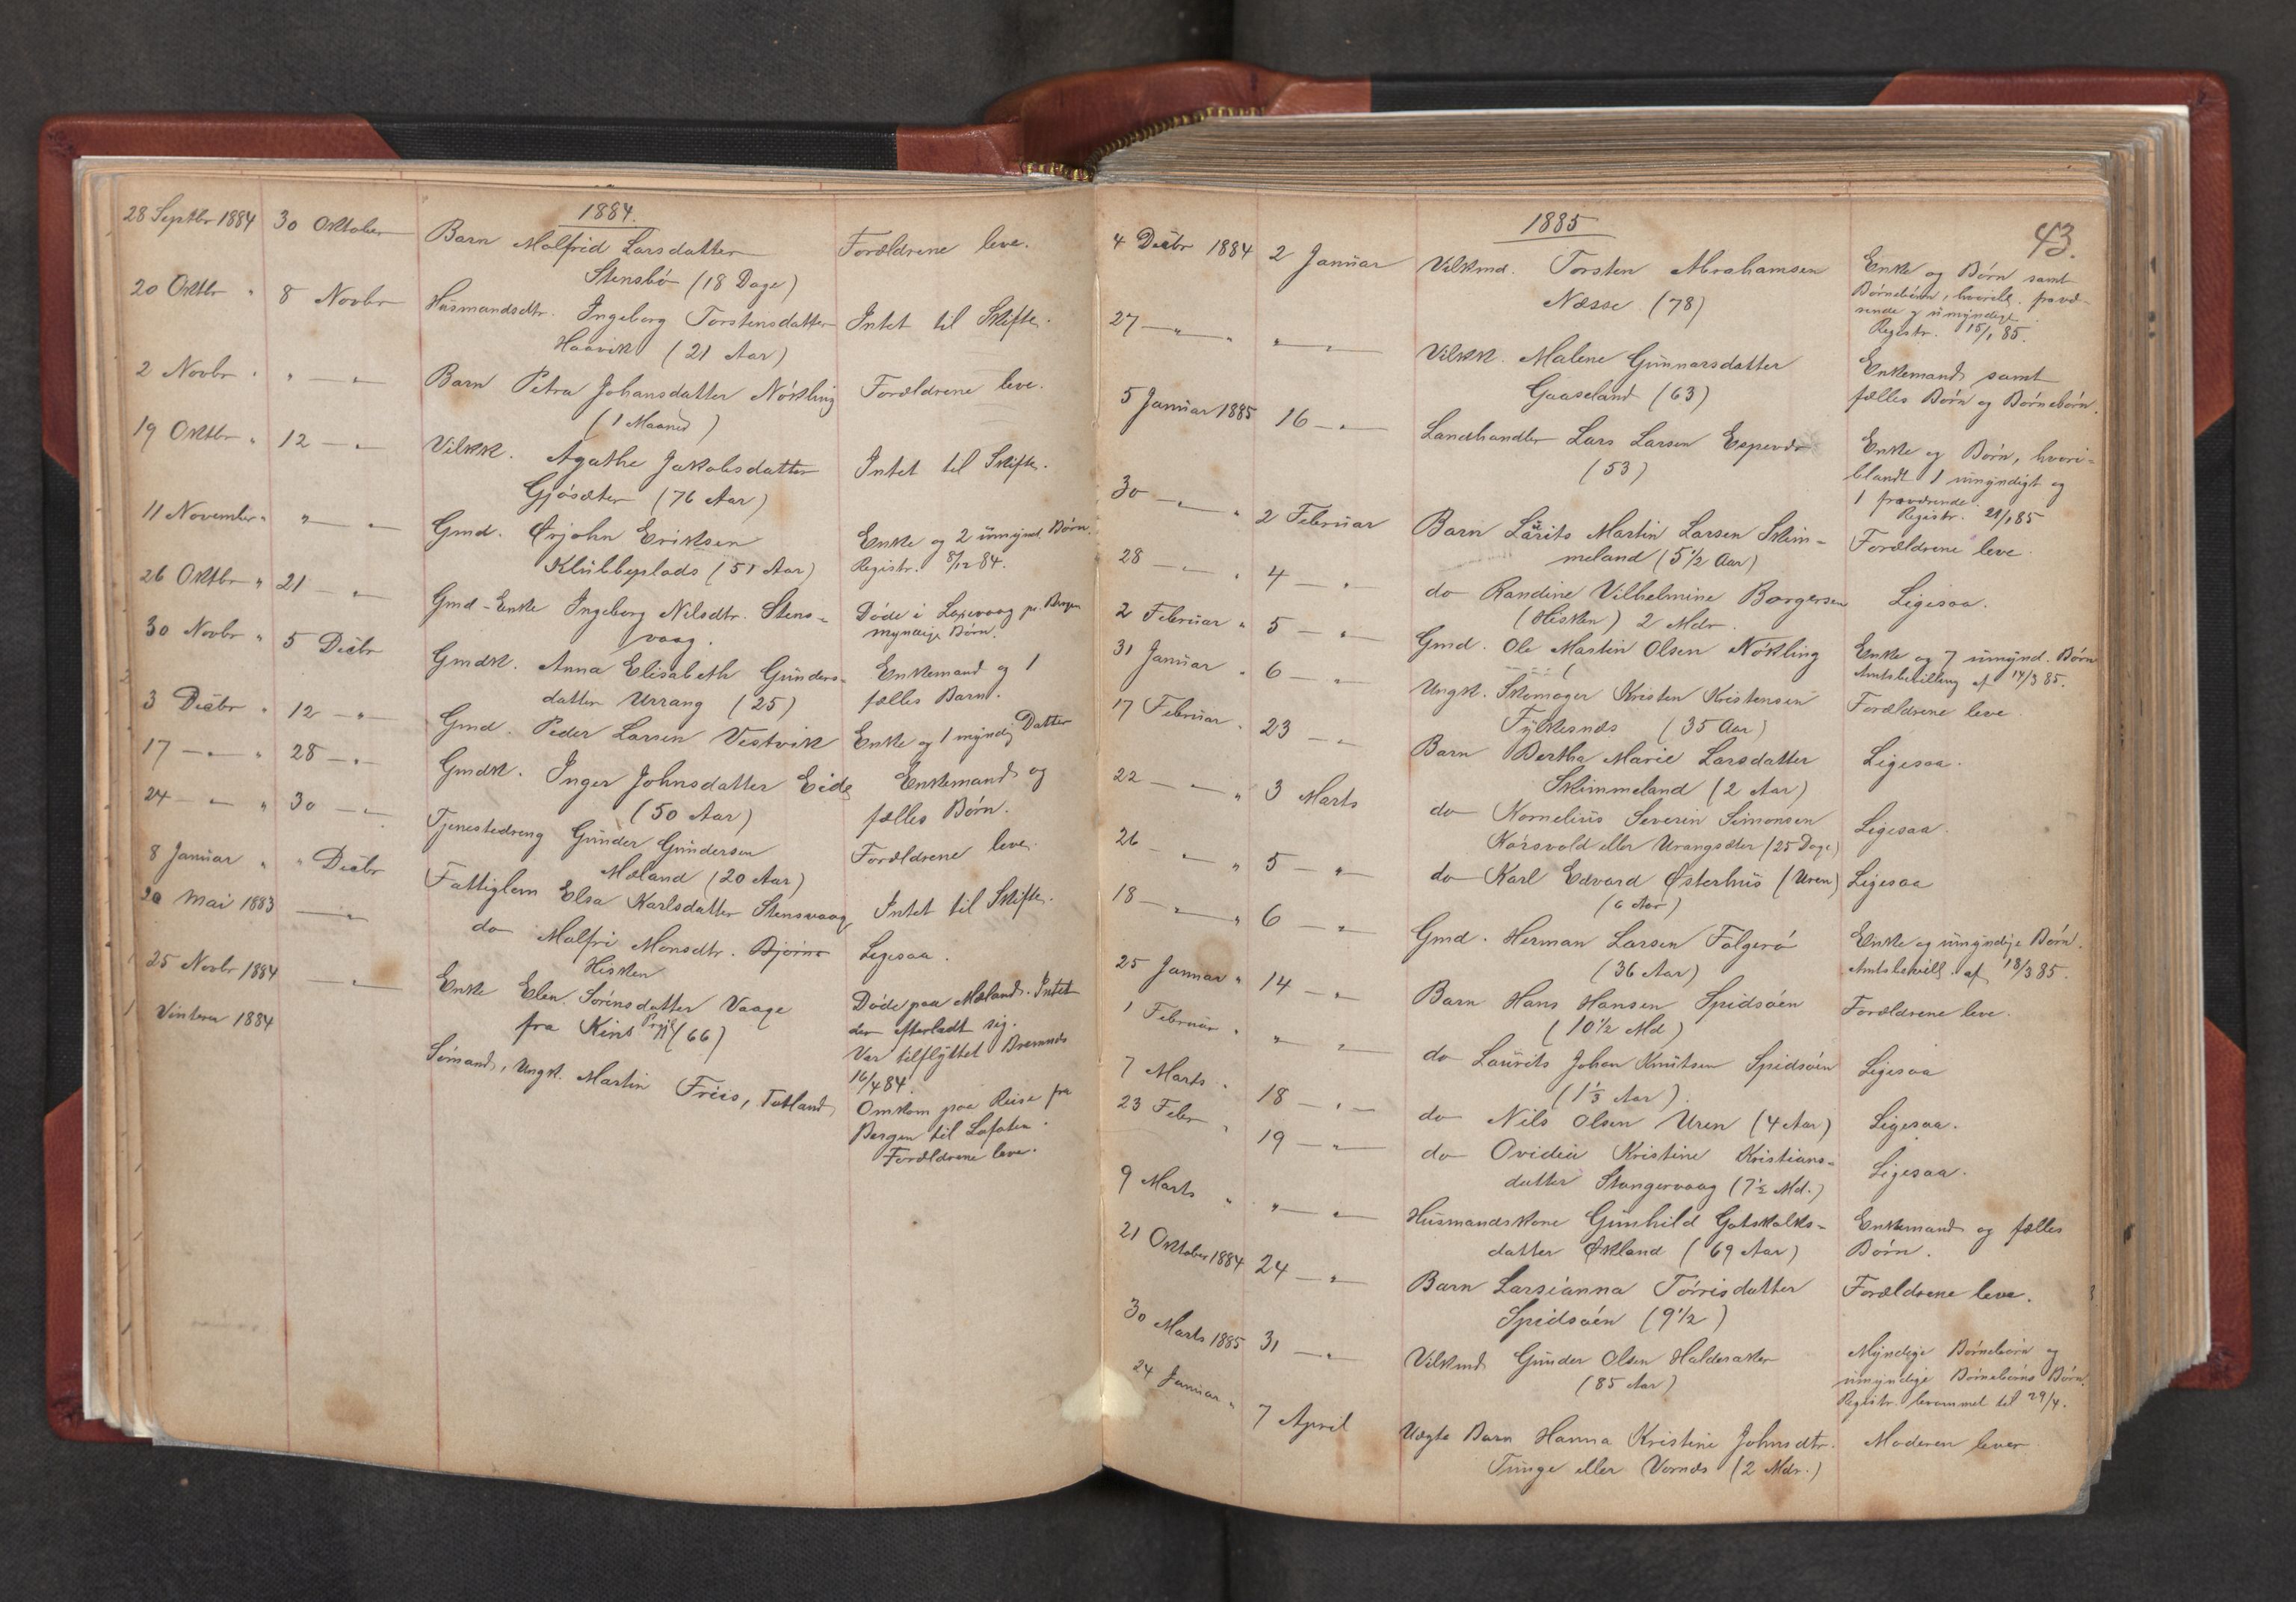 1884.
28 Septbr 1884 30 Oktober Barn Malfrid Larsdatter Forældrene leve.
Stensbø (18 Dage)
20 Oktbr " 8 Novbr Husmandsdtr. Ingeborg Torstensdatter Intet til Skifte.
Haavik (21 Aar)
2 Novbr " " — " — Barn Petra Johansdatter Nökling Forældrene leve.
(1 Maaned)
19 Oktbr " 12 — " — Vilkk. Agathe Jakobsdatter Intet til Skifte.
Gjøsæter (76 Aar)
11 November " " — " — Gmd. Ørjohn Eriksen Enke og 2 umynd. Børn.
Klubbeplads (51 Aar) Registr. 8/12 84.
26 Oktbr " 21 — " — Gmd-Enke Ingeborg Nilsdtr. Stens- Døde i Laxevaag pr. Bergen
vaag. myndige Børn.
30 Novbr " 5 Decbr Gmdk. Anna Elisabeth Gunders- Enkemand og 1
datter Urrang (25) fælles Barn.
3 Decbr " 12 — " — Gmd. Peder Larsen Vestvik Enke og 1 myndig Datter
17 — " — " 28 — " — Gmdk. Inger Johnsdatter Eide Enkemand og
(50 Aar) fælles Børn.
24 — " — " 30 — " — Tjenestedreng Gunder Gundersen Forældrene leve.
Mæland (20 Aar)
8 Januar " " Decbr Fattiglem Elsa Karlsdatter Stensvaag Intet til Skifte.
20 Mai 1883 — " — do Malfri Monsdtr. Bjørns Ligesaa.
Hisken
25 Novbr 1884 — " — Enke Elen Sørensdatter Vaage Døde paa Mæland. Intet
fra Kinš Prgj (66) der efterladt sig.
Var tilflyttet Bremnes
16/4 84.
Vinteren 1884 Sømand, Ungk. Martin Friis, Totland Omkom paa Reise fra
Bergen til Lofoten.
Forældrene leve.
1885
43.
4 Decbr 1884 2 Januar Vilkmd. Torsten Abrahamsen Enke og Børn samt
Næsse (78) Børnebørn, hvoraf fravæ-
rende og umyndige.
Registr. 15/1 85.
27 — " — " " — " — Vilkk. Malene Gunnarsdatter Enkemand samt
Gaaseland (63) fælles Børn og Børnebørn.
5 Januar 1885 16 — " — Landhandler Lars Larsen Espevær Enke og Børn, hvori-
(53) blandt 1 umyndigt og
1 fraværende.
Registr. 21/1 85
30 — " — " 2 Februar Barn Laurits Martin Larsen Skim- Forældrene leve.
meland (5 1/2 Aar)
28 — " — " 4 — " — do Randine Vilhelmine Borgersen Ligesaa.
(Hisken) 2 Mdr.
2 Februar " 5 — " — Gmd. Ole Martin Olsen Nökling Enke og 7 umynd. Børn
Amtsbevilling af 14/3 85.
31 Januar " 6 — " — Ungk. Skomager Kristen Kristensen Forældrene leve
Fylkesnæs (35 Aar)
17 Februar " 23 — " — Barn Bertha Marie Larsdatter Ligesaa.
Skimmeland (2 Aar)
22 — " — " 3 Marts do Kornelius Severin Simonsen Ligesaa.
Kørsvold eller Urangsæter (25 Dage)
26 — " — " 5 — " — do Karl Edvard Østerhus (Uren) Ligesaa
(6 Aar)
18 — " — " 6 — " — Gmd. Herman Larsen Folgerø Enke og umyndige Børn.
(36 Aar) Amtsbevill. af 18/3 85.
25 Januar " 14 — " — Barn Hans Hansen Spidsøen Forældrene leve.
(10 1/2 Md)
1 Februar " " — " — do Laurits Johan Knutsen Spidsøen Ligesaa
(1 1/3 Aar)
7 Marts " 18 — " — do Nils Olsen Uren (4 Aar) Ligesaa.
23 Febr " 19 — " — do Ovidia Kristine Kristians- Ligesaa.
datter Stangervaag (7 1/2 Md.)
9 Marts " " — " — Husmandskone Gunhild Gotskalks- Enkemand og fælles
datter Økland (69 Aar) Børn.
21 Oktober 1884 24 — " — Barn Larsianna Tørrisdatter Forældrene leve.
Spidsøen (9 1/2)
30 Marts 1885 31 — " — Vilkmd Gunder Olsen Halderaker Myndige Børnebørn og
(85 Aar) umyndige Børnebørns Børn.
Registr. berammet til 29/4.
24 Januar " 7 April Uægte Barn Hanna Kristine Johnsdtr. Moderen lever
Tunge eller Vernæs (2 Mdr.)